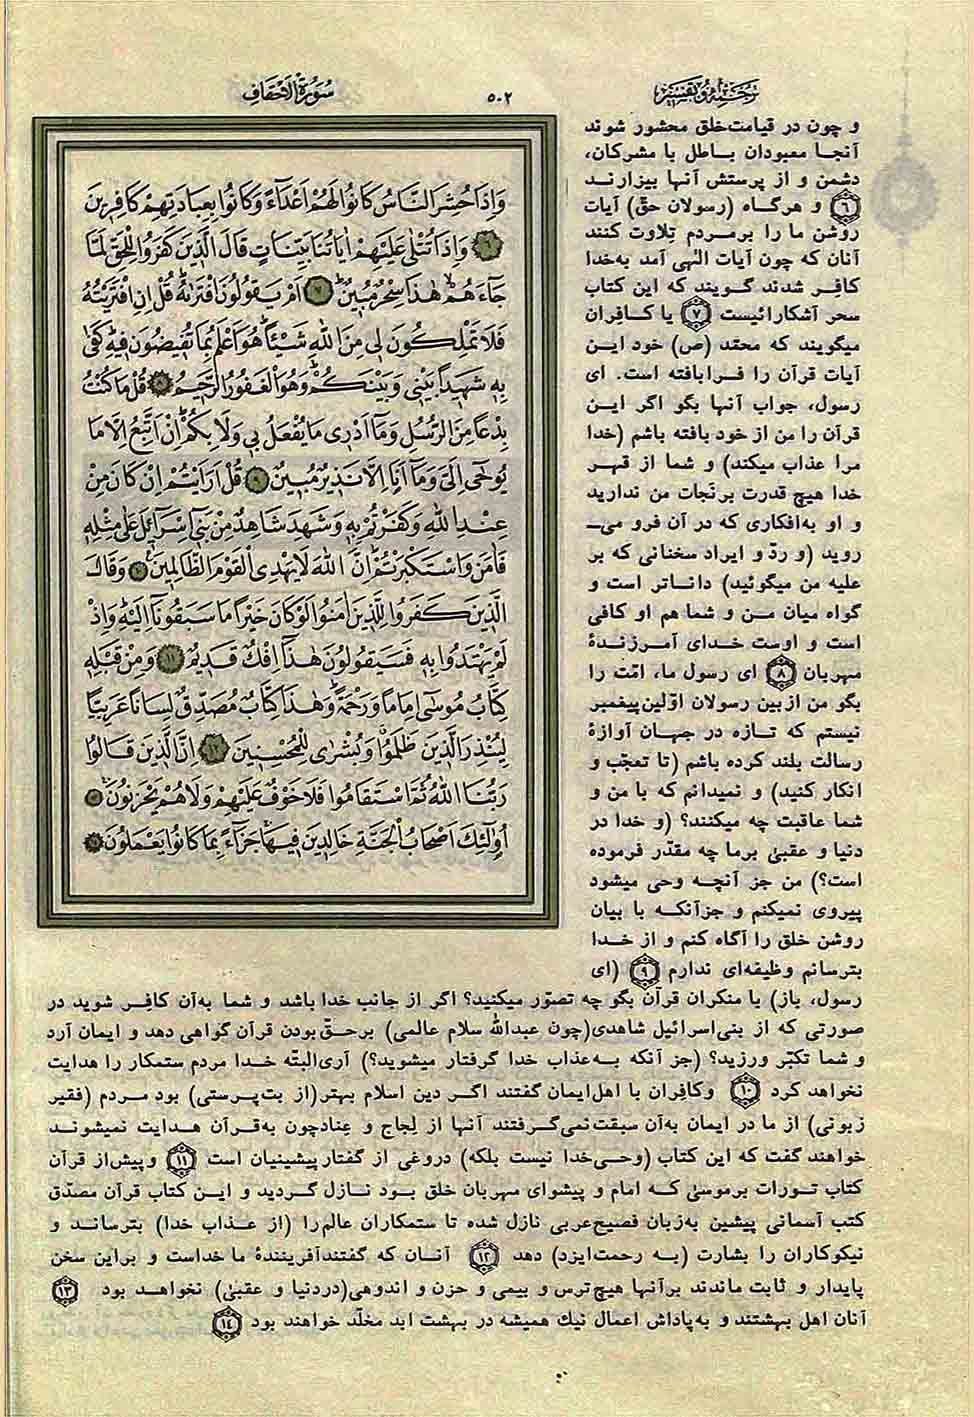 ترجمه و تفسیر
۵۰۲
سُورَةُ الْاَحْقَافِ
وَاِذَا حُشِرَ النَّاسُ كَانُوا لَهُمْ اَعْدَآءً وَكَانُوا بِعِبَادَتِهِمْ كَافِرِينَ
۶ وَاِذَا تُتْلٰى عَلَيْهِمْ اٰيَاتُنَا بَيِّنَاتٍ قَالَ الَّذِينَ كَفَرُوا لِلْحَقِّ لَمَّا
جَآءَهُمْ هٰذَا سِحْرٌ مُبِينٌ ۷ اَمْ يَقُولُونَ افْتَرٰيهُ قُلْ اِنِ افْتَرَيْتُهُ
فَلَا تَمْلِكُونَ لِى مِنَ اللّٰهِ شَيْئًا هُوَ اَعْلَمُ بِمَا تُفِيضُونَ فِيهِ كَفٰى
بِهِ شَهِيدًا بَيْنِى وَبَيْنَكُمْ وَهُوَ الْغَفُورُ الرَّحِيمُ ۸ قُلْ مَا كُنْتُ
بِدْعًا مِنَ الرُّسُلِ وَمَآ اَدْرِى مَا يُفْعَلُ بِى وَلَا بِكُمْ اِنْ اَتَّبِعُ اِلَّا مَا
يُوحٰٓى اِلَىَّ وَمَآ اَنَا اِلَّا نَذِيرٌ مُبِينٌ ۹ قُلْ اَرَاَيْتُمْ اِنْ كَانَ مِنْ
عِنْدِ اللّٰهِ وَكَفَرْتُمْ بِهِ وَشَهِدَ شَاهِدٌ مِنْ بَنِىٓ اِسْرَآئِيلَ عَلٰى مِثْلِهِ
فَاٰمَنَ وَاسْتَكْبَرْتُمْ اِنَّ اللّٰهَ لَا يَهْدِى الْقَوْمَ الظَّالِمِينَ ۱۰ وَقَالَ
الَّذِينَ كَفَرُوا لِلَّذِينَ اٰمَنُوا لَوْ كَانَ خَيْرًا مَا سَبَقُونَآ اِلَيْهِ وَاِذْ
لَمْ يَهْتَدُوا بِهِ فَسَيَقُولُونَ هٰذَآ اِفْكٌ قَدِيمٌ ۱۱ وَمِنْ قَبْلِهِ
كِتَابُ مُوسٰٓى اِمَامًا وَرَحْمَةً وَهٰذَا كِتَابٌ مُصَدِّقٌ لِسَانًا عَرَبِيًّا
لِيُنْذِرَ الَّذِينَ ظَلَمُوا وَبُشْرٰى لِلْمُحْسِنِينَ ۱۲ اِنَّ الَّذِينَ قَالُوا
رَبُّنَا اللّٰهُ ثُمَّ اسْتَقَامُوا فَلَا خَوْفٌ عَلَيْهِمْ وَلَا هُمْ يَحْزَنُونَ ۱۳
اُولٰٓئِكَ اَصْحَابُ الْجَنَّةِ خَالِدِينَ فِيهَا جَزَآءً بِمَا كَانُوا يَعْمَلُونَ ۱۴
و چون در قیامت خلق محشور شوند
آنجا معبودان باطل با مشرکان،
دشمن و از پرستش آنها بیزارند
۶ و هرگاه (رسولان حق) آیات
روشن ما را بر مردم تِلاوت کنند
آنان که چون آیات الٰهی آمد به‌خدا
کافِر شدند گویند که این کتاب
سحر آشکارائیست ۷ یا کافِران
میگویند که محمّد (ص) خود این
آیات قرآن را فرابافته است. ای
رسول، جواب آنها بگو اگر این
قرآن را من از خود بافته باشم (خدا
مرا عذاب میکند) و شما از قهر
خدا هیچ قدرت برنَجات من ندارید
و او به‌افکاری که در آن فرو می‌ـ
روید (و ردّ و ایراد سخنانی که بر
علیه من میگوئید) داناتر است و
گواه میان من و شما هم او کافی
است و اوست خدای آمرزندۀ
مهربان ۸ ای رسول ما، امّت را
بگو من از بین رسولان اوّلین پیغمبر
نیستم که تازه در جهان آوازۀ
رسالت بلند کرده باشم (تا تعجّب و
انکار کنید) و نمیدانم که با من و
شما عاقبت چه میکنند؟ (و خدا در
دنیا و عقبیٰ برما چه مقدّر فرموده
است؟) من جز آنچه وحی میشود
پیروی نمیکنم و جزآنکه با بیان
روشن خلق را آگاه کنم و از خدا
بترسانم وظیفه‌ای ندارم ۹ (ای
رسول، باز) با منکران قرآن بگو چه تصوّر میکنید؟ اگر از جانب خدا باشد و شما به‌آن کافِر شوید در
صورتی که از بنی‌اسرائیل شاهدی(چون عبدالله سلام عالمی) برحقّ بودن قرآن گواهی دهد و ایمان آرد
و شما تکبّر ورزید؟ (جز آنکه به‌عذاب خدا گرفتار میشوید؟) آری‌البتّه خدا مردم ستمکار را هدایت
نخواهد کرد ۱۰ وکافِران با اهل‌ایمان گفتند اگر دین اسلام بهتر(از بت‌پرستی) بود مردم (فقیر
زبونی) از ما در ایمان به‌آن سبقت‌نمی‌گرفتند آنها از لِجاج و عِنادچون به‌قرآن هدایت نمیشوند
خواهند گفت که این کتاب (وحی‌خدا نیست بلکه) دروغی از گفتار پیشینیان است ۱۱ وپیش‌از قرآن
کتاب تورات برموسیٰ که امام و پیشوای مهربان خلق بود نازل گردید و این کتاب قرآن مصدّق
کتب آسمانی پیشین به‌زبان فصیح‌عربی نازل شده تا ستمکاران عالم‌را (از عذاب خدا) بترساند و
نیکوکاران را بشارت (به رحمت‌ایزد) دهد ۱۲ آنان که گفتندآفرینندۀ ما خداست و براین سخن
پایدار و ثابت ماندند برآنها هیچ‌ترس و بیمی و حزن و اندوهی(دردنیا و عقبیٰ) نخواهد بود ۱۳
آنان اهل بهشتند و به‌پاداش اعمال نیك همیشه در بهشت ابد مخلّد خواهند بود ۱۴